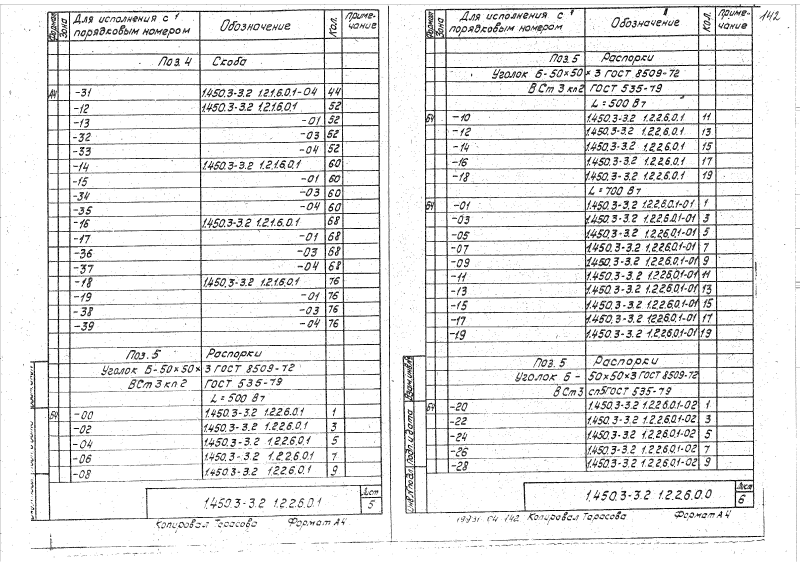 Формат Зона Для исполнения с порядковым номером Обозначение Кол. Приме-чание
Поз.4 Скоба
А4 -31 1.450.3-3.2 1.2.1.6.0.1-04 44
-12 1.450.3-3.2 1.2.1.6.0.1 52
-13 -01 52
-32 -03 52
-33 -04 52
-14 1.450.3-3.2 1.2.1.6.0.1 60
-15 -01 60
-34 -03 60
-35 -04 60
-16 1.450.3-3.2 1.2.1.6.0.1 68
-17 -01 68
-36 -03 68
-37 -04 68
-18 1.450.3-3.2 1.2.1.6.0.1 76
-19 -01 76
-38 -03 76
-39 -04 76
Поз.5 Распорки
Уголок Б-50×50×3 ГОСТ 8509-72
ВСт 3 кп 2 ГОСТ 535-79
L=500 Вт
Б4 -00 1.450.3-3.2 1.2.2.6.0.1 1
-02 1.450.3-3.2 1.2.2.6.0.1 3
-04 1.450.3-3.2 1.2.2.6.0.1 5
-06 1.450.3-3.2 1.2.2.6.0.1 7
-08 1.450.3-3.2 1.2.2.6.0.1 9
1.450.3-3.2 1.2.2.6.0.1 Лист 5
Копировал Тарасова Формат А4
142
Формат Зона Для исполнения с порядковым номером Обозначение Кол. Приме-чание
Поз.5 Распорки
Уголок Б-50×50×3 ГОСТ 8509-72
ВСт 3 кп2 ГОСТ 535-79
L=500 Вт
Б4 -10 1.450.3-3.2 1.2.2.6.0.1 11
-12 1.450.3-3.2 1.2.2.6.0.1 13
-14 1.450.3-3.2 1.2.2.6.0.1 15
-16 1.450.3-3.2 1.2.2.6.0.1 17
-18 1.450.3-3.2 1.2.2.6.0.1 19
L=700 Вт
Б4 -01 1.450.3-3.2 1.2.2.6.0.1-01 1
-03 1.450.3-3.2 1.2.2.6.0.1-01 3
-05 1.450.3-3.2 1.2.2.6.0.1-01 5
-07 1.450.3-3.2 1.2.2.6.0.1-01 7
-09 1.450.3-3.2 1.2.2.6.0.1-01 9
-11 1.450.3-3.2 1.2.2.6.0.1-01 11
-13 1.450.3-3.2 1.2.2.6.0.1-01 13
-15 1.450.3-3.2 1.2.2.6.0.1-01 15
-17 1.450.3-3.2 1.2.2.6.0.1-01 17
-19 1.450.3-3.2 1.2.2.6.0.1-01 19
Поз.5 Распорки
Уголок Б-50×50×3 ГОСТ 8509-72
ВСт3 сп5 ГОСТ 535-79
Б4 -20 1.450.3-3.2 1.2.2.6.0.1-02 1
-22 1.450.3-3.2 1.2.2.6.0.1-02 3
-24 1.450.3-3.2 1.2.2.6.0.1-02 5
-26 1.450.3-3.2 1.2.2.6.0.1-02 7
-28 1.450.3-3.2 1.2.2.6.0.1-02 9
Взам.инв.№
Подп. и дата
Инв.№ подл.
1.450.3-3.2 1.2.2.6.0.0 Лист 6
04 142 Копировал Тарасова Формат А4